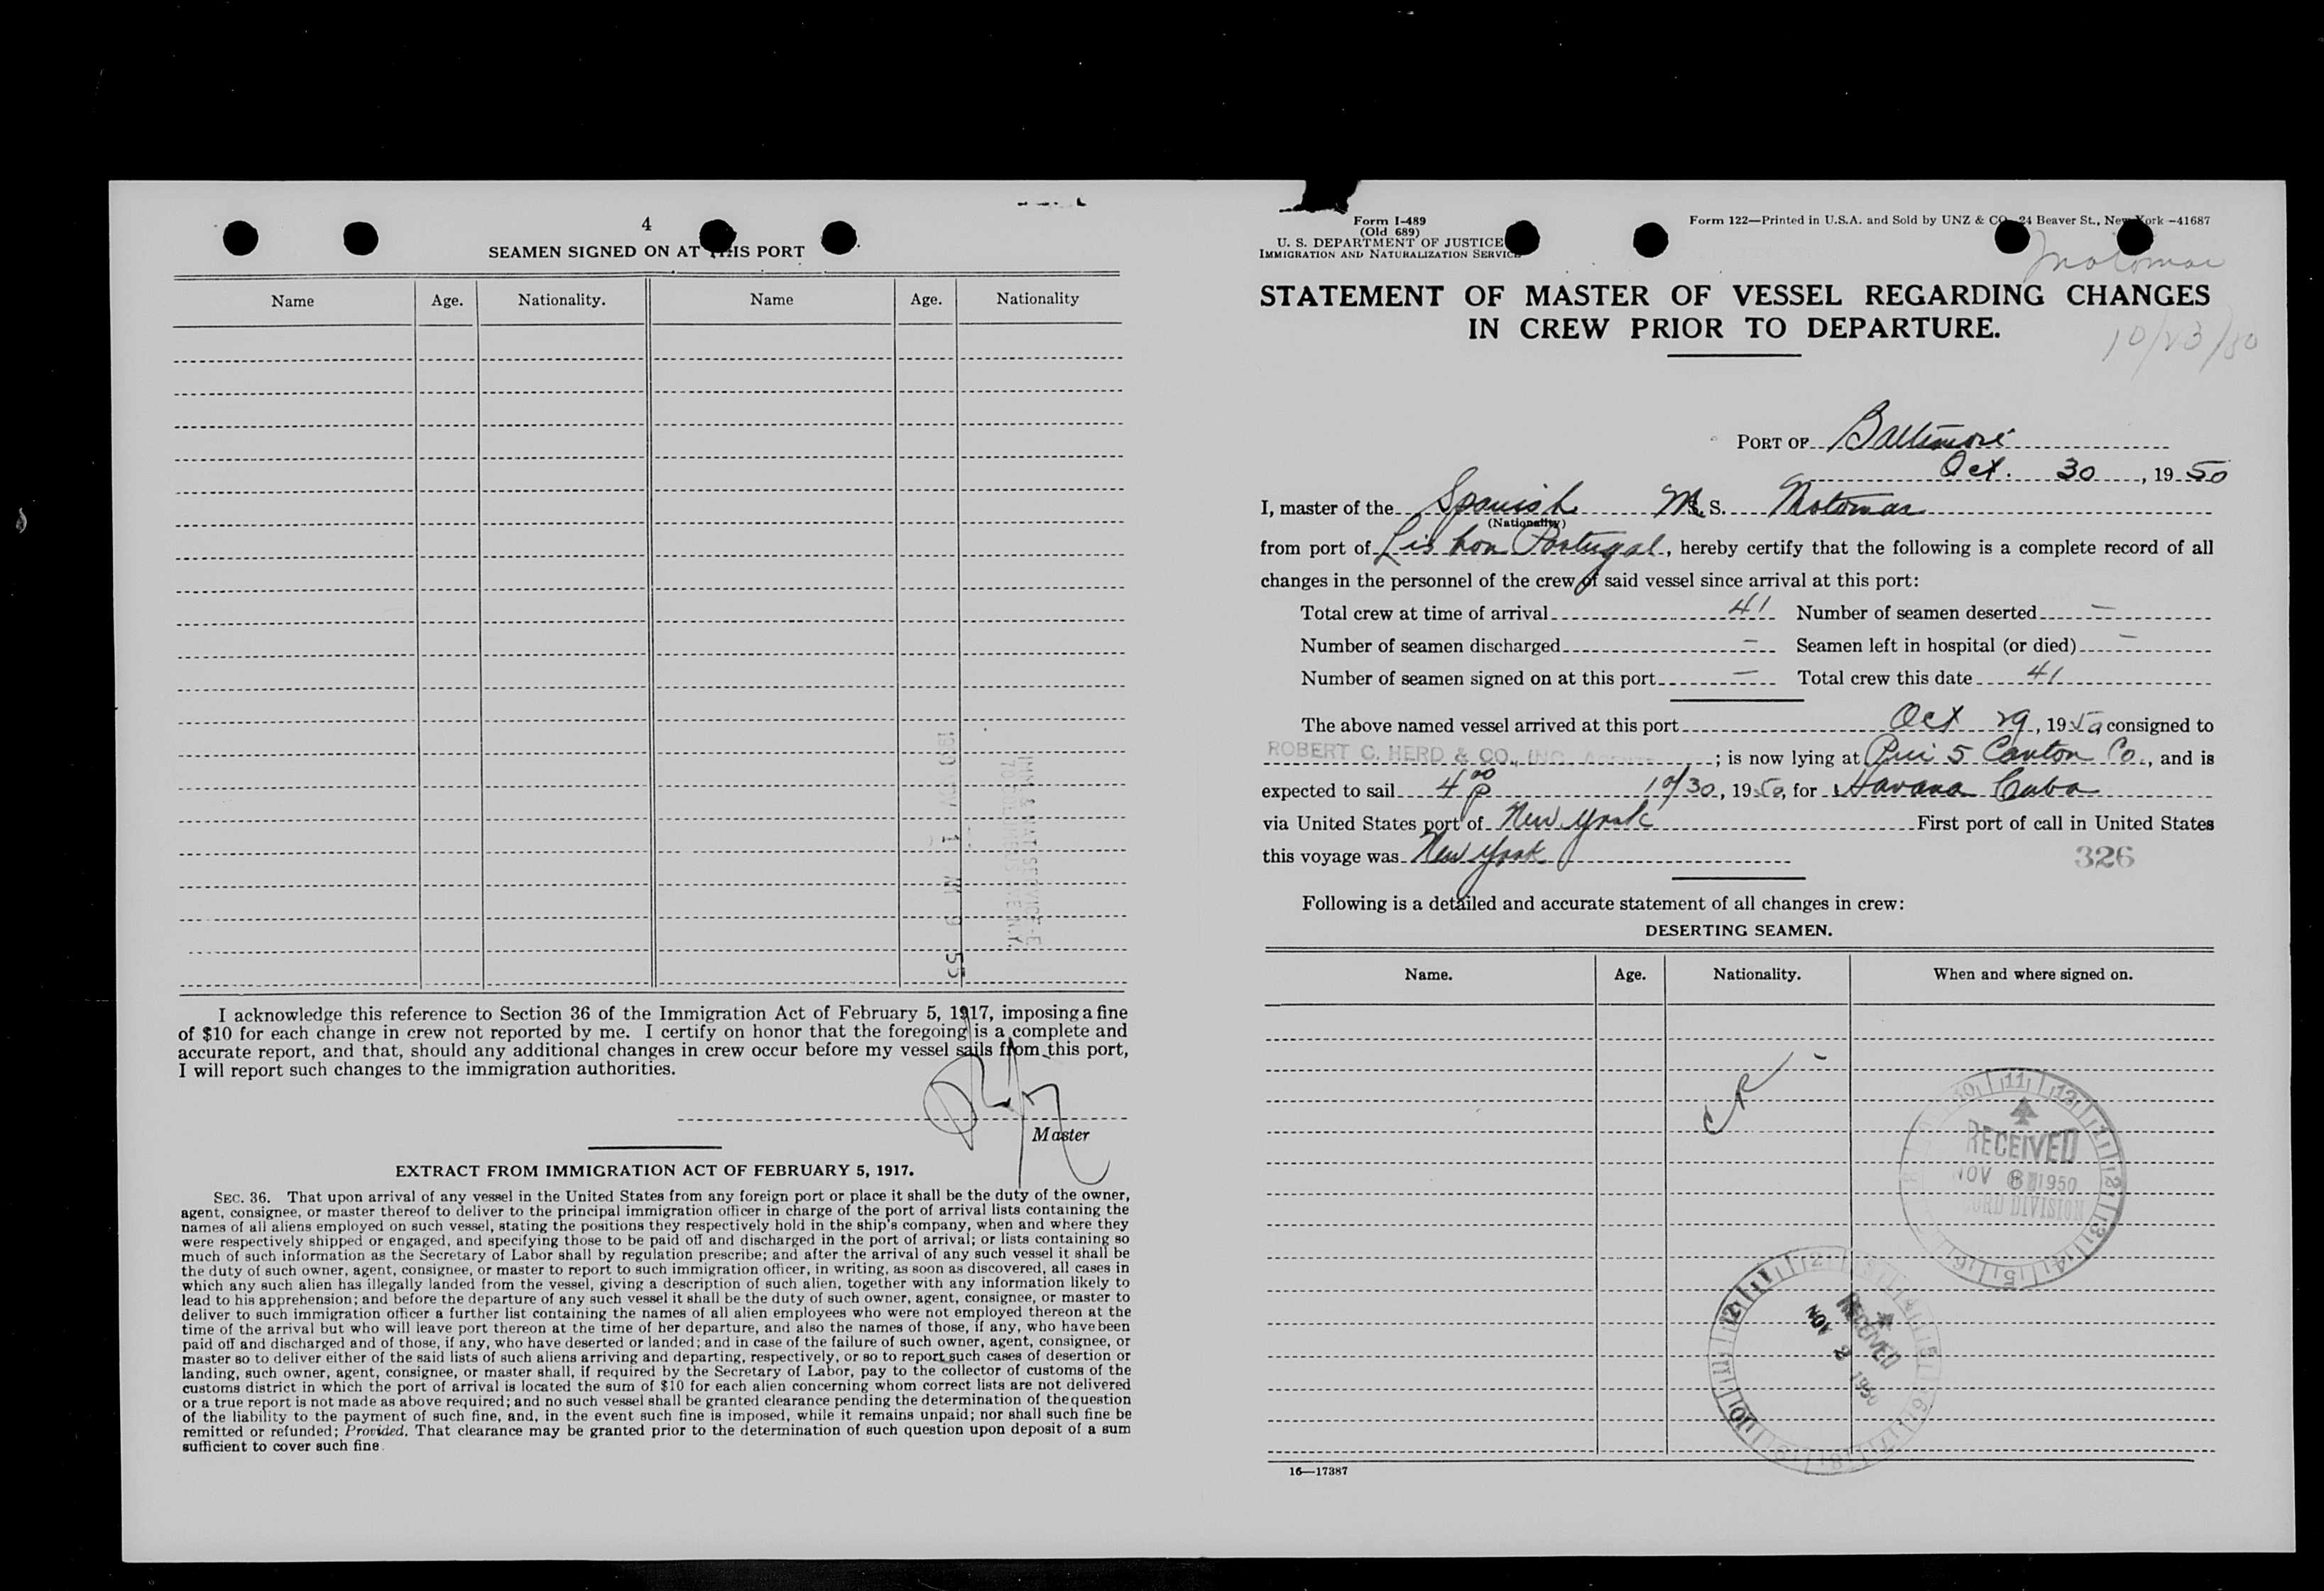 4
SEAMEN SIGNED ON AT THIS PORT
Name Age. Nationality. Name Age. Nationality
I acknowledge this reference to Section 36 of the Immigration Act of February 5, 1917, imposing a fine
of $10 for each change in crew not reported by me. I certify on honor that the foregoing is a complete and
accurate report, and that, should any additional changes in crew occur before my vessel sails from this port,
I will report such changes to the immigration authorities.
Master
EXTRACT FROM IMMIGRATION ACT OF FEBRUARY 5, 1917.
SEC. 36. That upon arrival of any vessel in the United States from any foreign port or place it shall be the duty of the owner,
agent, consignee, or master thereof to deliver to the principal immigration officer in charge of the port of arrival lists containing the
names of all aliens employed on such vessel, stating the positions they respectively hold in the ship's company, when and where they
were respectively shipped or engaged, and specifying those to be paid off and discharged in the port of arrival; or lists containing so
much of such information as the Secretary of Labor shall by regulation prescribe; and after the arrival of any such vessel it shall be
the duty of such owner, agent, consignee, or master to report to such immigration officer, in writing, as soon as discovered, all cases in
which any such alien has illegally landed from the vessel, giving a description of such alien, together with any information likely to
lead to his apprehension; and before the departure of any such vessel it shall be the duty of such owner, agent, consignee, or master to
deliver to such immigration officer a further list containing the names of all alien employees who were not employed thereon at the
time of the arrival but who will leave port thereon at the time of her departure, and also the names of those, if any, who have been
paid off and discharged and of those, if any, who have deserted or landed; and in case of the failure of such owner, agent, consignee, or
master so to deliver either of the said lists of such aliens arriving and departing, respectively, or so to report such cases of desertion or
landing, such owner, agent, consignee, or master shall, if required by the Secretary of Labor, pay to the collector of customs of the
customs district in which the port of arrival is located the sum of $10 for each alien concerning whom correct lists are not delivered
or a true report is not made as above required; and no such vessel shall be granted clearance pending the determination of the question
of the liability to the payment of such fine, and, in the event such fine is imposed, while it remains unpaid; nor shall such fine be
remitted or refunded; Provided, That clearance may be granted prior to the determination of such question upon deposit of a sum
sufficient to cover such fine.
Form I-489
(Old 689)
U. S. DEPARTMENT OF JUSTICE
IMMIGRATION AND NATURALIZATION SERVICE
Form 122—Printed in U.S.A. and Sold by UNZ & CO. 24 Beaver St., New York -41687
Motomar
STATEMENT OF MASTER OF VESSEL REGARDING CHANGES
IN CREW PRIOR TO DEPARTURE.
10/23/50
PORT OF Baltimore
Oct. 30, 1950
I, master of the Spanish M.S. Motomar
(Nationality)
from port of Lisbon Portugal, hereby certify that the following is a complete record of all
changes in the personnel of the crew of said vessel since arrival at this port:
Total crew at time of arrival 41 Number of seamen deserted –
Number of seamen discharged – Seamen left in hospital (or died) –
Number of seamen signed on at this port – Total crew this date 41
The above named vessel arrived at this port Oct 29, 1950 consigned to
ROBERT C. HERD & CO., INC. AGENTS; is now lying at Pier 5 Canton Co., and is
expected to sail 4 00 P 10/30, 1950, for Havana Cuba
via United States port of New York First port of call in United States
this voyage was New York
326
Following is a detailed and accurate statement of all changes in crew:
DESERTING SEAMEN.
Name. Age. Nationality. When and where signed on.
RECEIVED
NOV 6 1950
RECORD DIVISION
RECEIVED
NOV 2 1950
16—17387